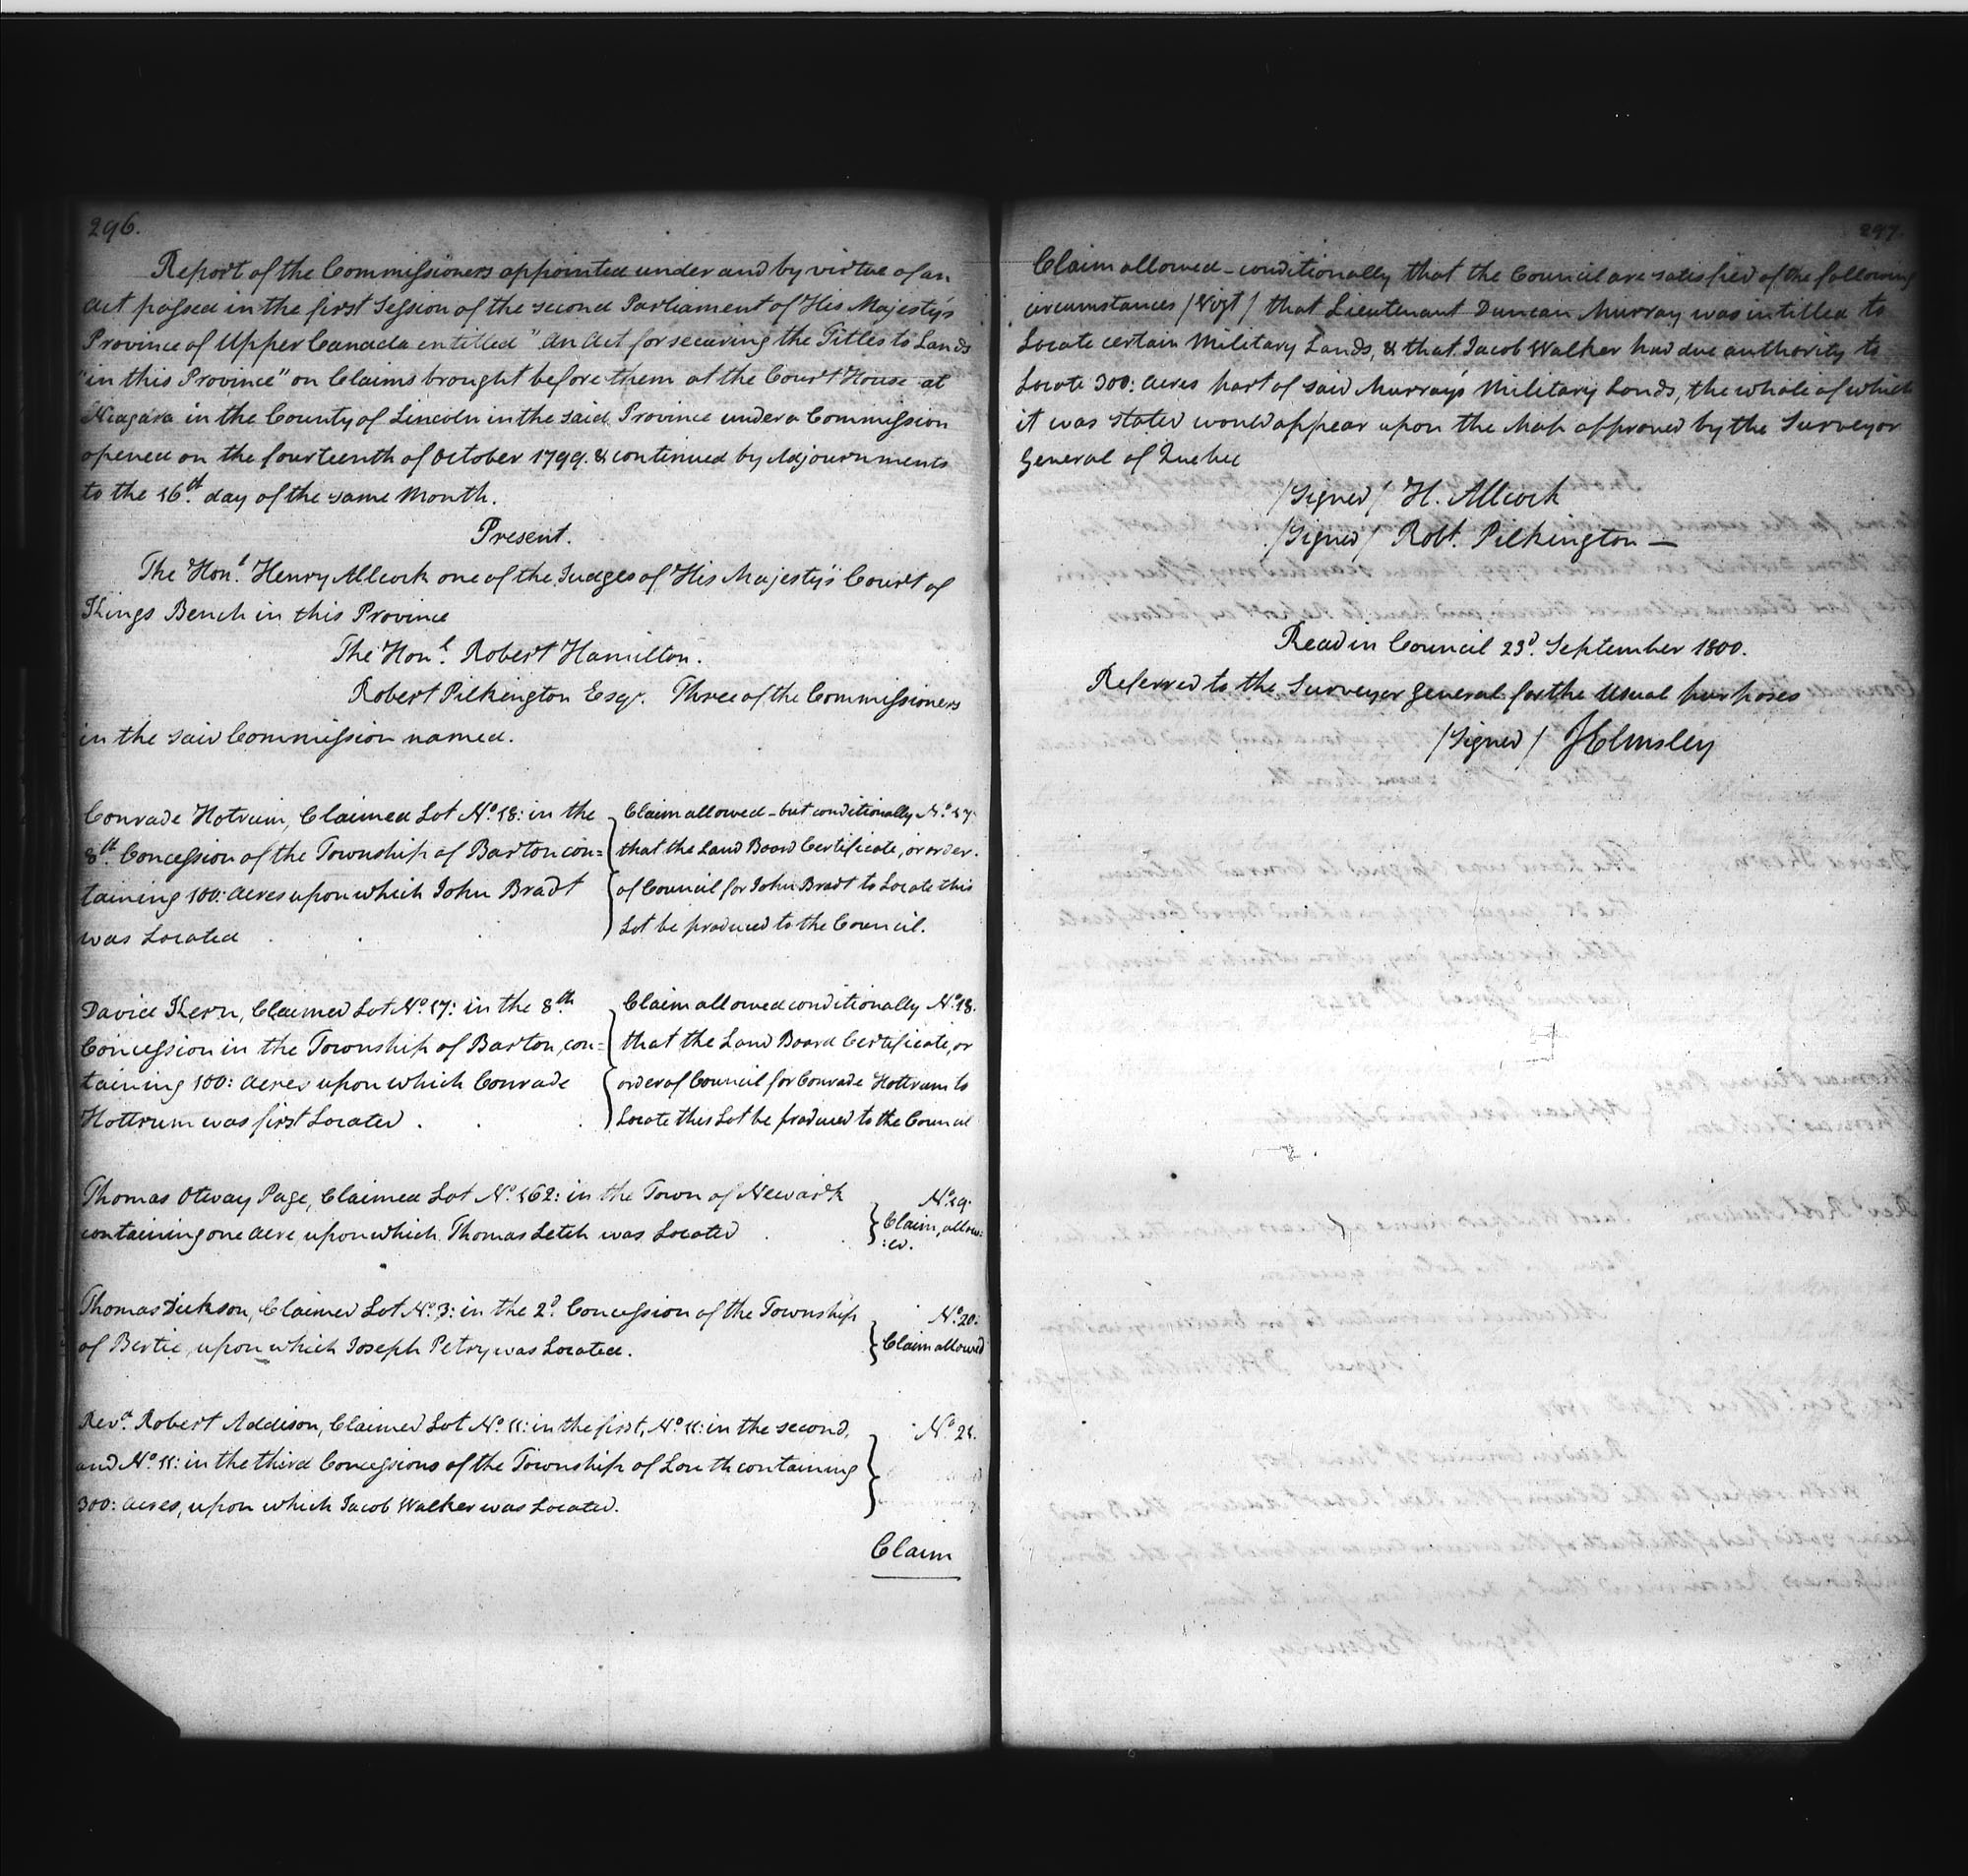 296.
Report of the Commissioners appointed under and by virtue of an
Act passed in the first Session of the second Parliament of His Majesty's
Province of Upper Canada entitled "An Act for securing the Titles to Lands
"in this Province" on Claims brought before them at the Court House at
Niagara in the County of Lincoln in the said Province under a Commission
opened on the fourteenth of October 1799. & continued by Adjournments
to the 16th. day of the same Month.
Present.
The Honl. Henry Allcock one of the Judges of His Majesty's Court of
Kings Bench in this Province
The Honl. Robert Hamilton.
Robert Pilkington Esqr. Three of the Commissioners
in the said Commission named.
Conrade Hotrum, Claimed Lot No. 18: in the
8th. Concession of the Township of Barton con=
taining 100: Acres upon which John Bradt
was Located
Claim allowed - but conditionally No. 17.
that the Land Board Certificate, or order.
of Council for John Bradt to Locate this
Lot be produced to the Council.
David Kern, Claimed Lot No. 17: in the 8th
Concession in the Township of Barton, con=
taining 100: Acres upon which Conrade
Hottrum was first Located.
Claim allowed conditionally No. 18.
that the Land Board Certificate, or
order of Council for Conrade Hottrum to
Locate this Lot be produced to the Council
Thomas Otway Page, Claimed Lot No. 162: in the Town of Newark
containing one Acre, upon which Thomas Letch was Located
No. 19.
Claim, allow=
:ed.
Thomas Dickson, Claimed Lot No. 3: in the 2d. Concession of the Township
of Bertie, upon which Joseph Petry was Located.
No. 20.
Claim allowed
Revd. Robert Addison, Claimed Lot No. 11: in the first, No. 11: in the second,
and No. 11: in the third Concessions of the Township of Louth containing
300: Acres, upon which Jacob Walker was Located.
No. 21.
Claim
297.
Claim allowed - conditionally that the Council are satisfied of the following
circumstances /Vizt/ that Lieutenant Duncan Murray was intitled to
Locate certain Military Lands, & that Jacob Walker had due authority to
Locate 300: Acres part of said Murray's Military Lands, the whole of which
it was stated would appear upon the Map approved by the Surveyor
General of Quebec
/Signed/ H. Allcock
/Signed/ Robt. Pilkington —
Read in Council 23d. September 1800.
Referred to the Surveyor General for the Usual purposes
/Signed/ J Elmsley